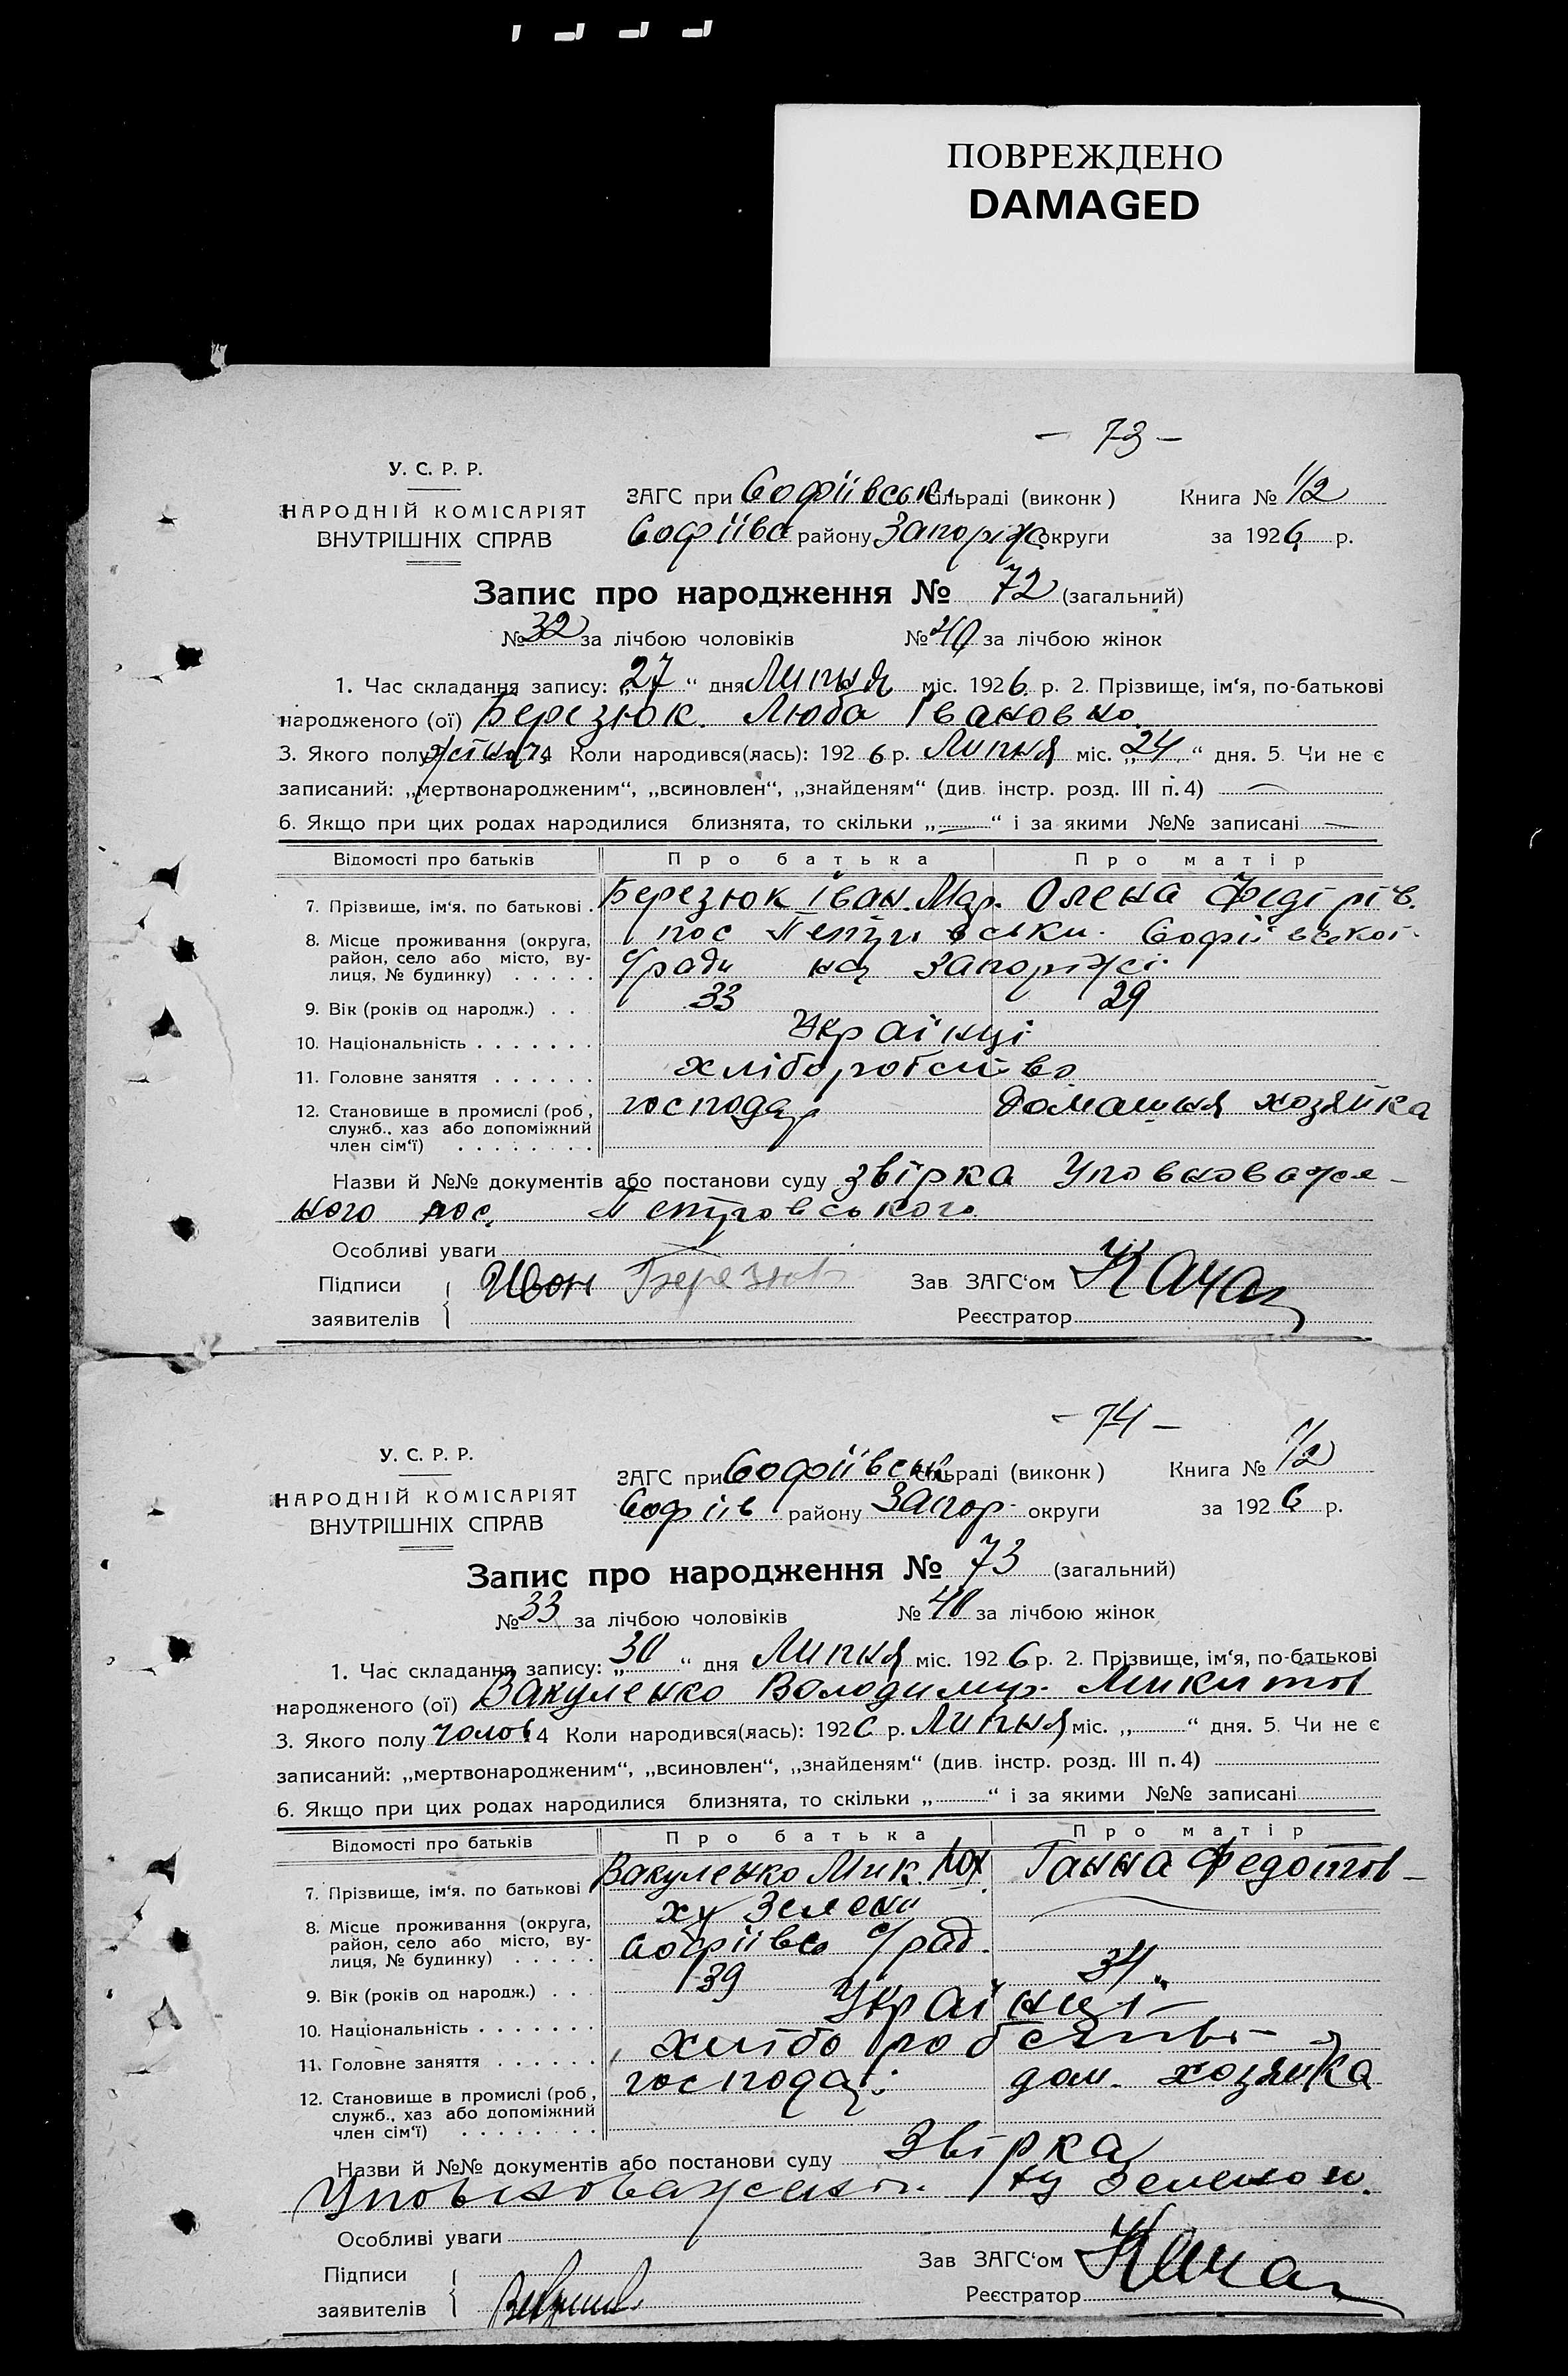 ПОВРЕЖДЕНО
DAMAGED
— 73 —
У. С. Р. Р.
НАРОДНІЙ КОМІСАРІЯТ
ВНУТРІШНІХ СПРАВ
ЗАГС при Софіївськ сільраді (виконк) Книга № 1/2
Софіївс району Запоріж округи за 1926 р.
Запис про народження № 72 (загальний)
№ 32 за лічбою чоловіків № 40 за лічбою жінок
1. Час складання запису: „27“ дня Липня міс. 1926 р. 2. Прізвище, ім‘я, по-батькові
народженого (ої) Березюк. Люба Івановно.
3. Якого полу жіноч 4 Коли народився(лась): 1926 р. Липня міс. „24“ дня. 5. Чи не є
записаний: „мертвонародженим“, „всиновлен“, „знайденям“ (див. інстр. розд. III п. 4) —
6. Якщо при цих родах народилися близнята, то скільки „—“ і за якими №№ записані —
Відомості про батьків Про батька Про матір
7. Прізвище, ім‘я, по батькові . Березюк Іван. Мар. Олена Федірів.
8. Місце проживання (округа, район, село або місто, вулиця, № будинку) . . . . . пос Петрівськи. Софіївської
с/ради на Запоріжсі
9. Вік (років од народж.) . . 33 29
10. Національність . . . . . . . Українці
11. Головне заняття . . . . . . хліборобство
12. Становище в промислі (роб, служб., хаз або допоміжний член сім‘ї) . . . . . . . . господар домашня хозяйка
Назви й №№ документів або постанови суду звірка Уповноваже-
ного пос. Петровського
Особливі уваги
Підписи заявителів Иван Березюк Зав ЗАГС‘ом Качан
Реєстратор
— 74 —
У. С. Р. Р.
НАРОДНІЙ КОМІСАРІЯТ
ВНУТРІШНІХ СПРАВ
ЗАГС при Софіївськ сільраді (виконк) Книга № 1/2
Софіїв району Запор. округи за 1926 р.
Запис про народження № 73 (загальний)
№ 33 за лічбою чоловіків № 40 за лічбою жінок
1. Час складання запису: „30“ дня Липня міс. 1926 р. 2. Прізвище, ім‘я, по-батькові
народженого (ої) Вакуленко Володимир. Микитов
3. Якого полу чолов 4 Коли народився(лась): 1926 р. Липня міс. „ “ дня. 5. Чи не є
записаний: „мертвонародженим“, „всиновлен“, „знайденям“ (див. інстр. розд. III п. 4)
6. Якщо при цих родах народилися близнята, то скільки „ “ і за якими №№ записані
Відомості про батьків Про батька Про матір
7. Прізвище, ім‘я, по батькові Вакуленко Мик. Ганна Федотов-
8. Місце проживання (округа, район, село або місто, вулиця, № будинку) . . . . . ху Зелени
Софіївс с/рад.
9. Вік (років од народж.) . . . 39 34
10. Національність . . . . . . . Українці
11. Головне заняття . . . . . . хліборобство
12. Становище в промислі (роб, служб., хаз або допоміжний член сім‘ї) . . . . . . . . господар. дом. хозяйка
Назви й №№ документів або постанови суду Звірка
Уповноваженого ху Зеленою.
Особливі уваги
Підписи заявителів Зав ЗАГС‘ом Качан
Реєстратор